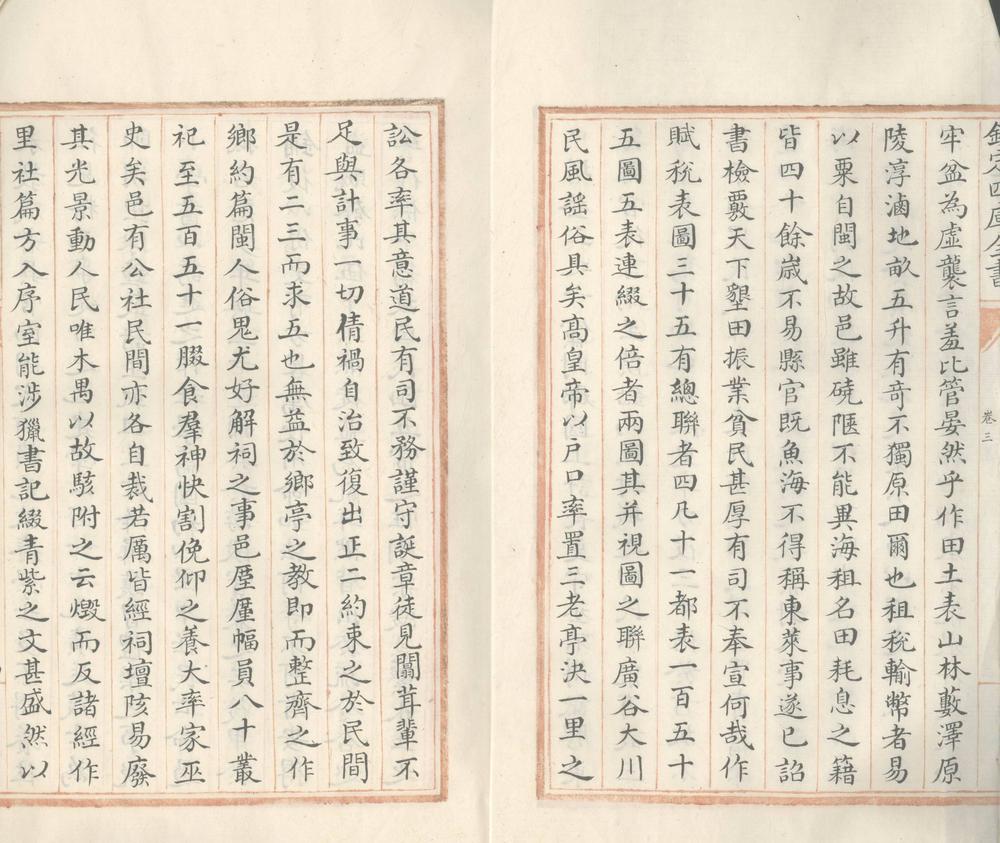 欽定四庫全書
卷三
牢盆為虛襲言羞比管晏然乎作田土表山林藪澤原
陵淳滷地畝五升有奇不獨原田爾也租稅輸幣者易
以粟自閩之故邑雖磽陿不能異海租名田耗息之籍
皆四十餘嵗不易縣官既魚海不得稱東萊事遂已詔
書檢覈天下墾田振業貧民甚厚有司不奉宣何哉作
賦稅表圖三十五有總聯者四凡十一都表一百五十
五圖五表連綴之倍者兩圖其并視圖之聯廣谷大川
民風謡俗具矣高皇帝以户口率置三老亭決一里之
訟各率其意道民有司不務謹守誕章徒見闒茸輩不
足與計事一切倩禍自治致復出正二約束之於民間
是有二三而求五也無益於鄉亭之教即而整齊之作
鄉約篇閩人俗鬼尤好解祠之事邑厔厪幅員八十叢
祀至五百五十一腏食羣神快割俛仰之養大率家巫
史矣邑有公社民間亦各自裁若厲皆經祠壇陔易廢
其光景動人民唯木禺以故駭附之云燬而反諸經作
里社篇方入序室能涉獵書記綴青紫之文甚盛然以